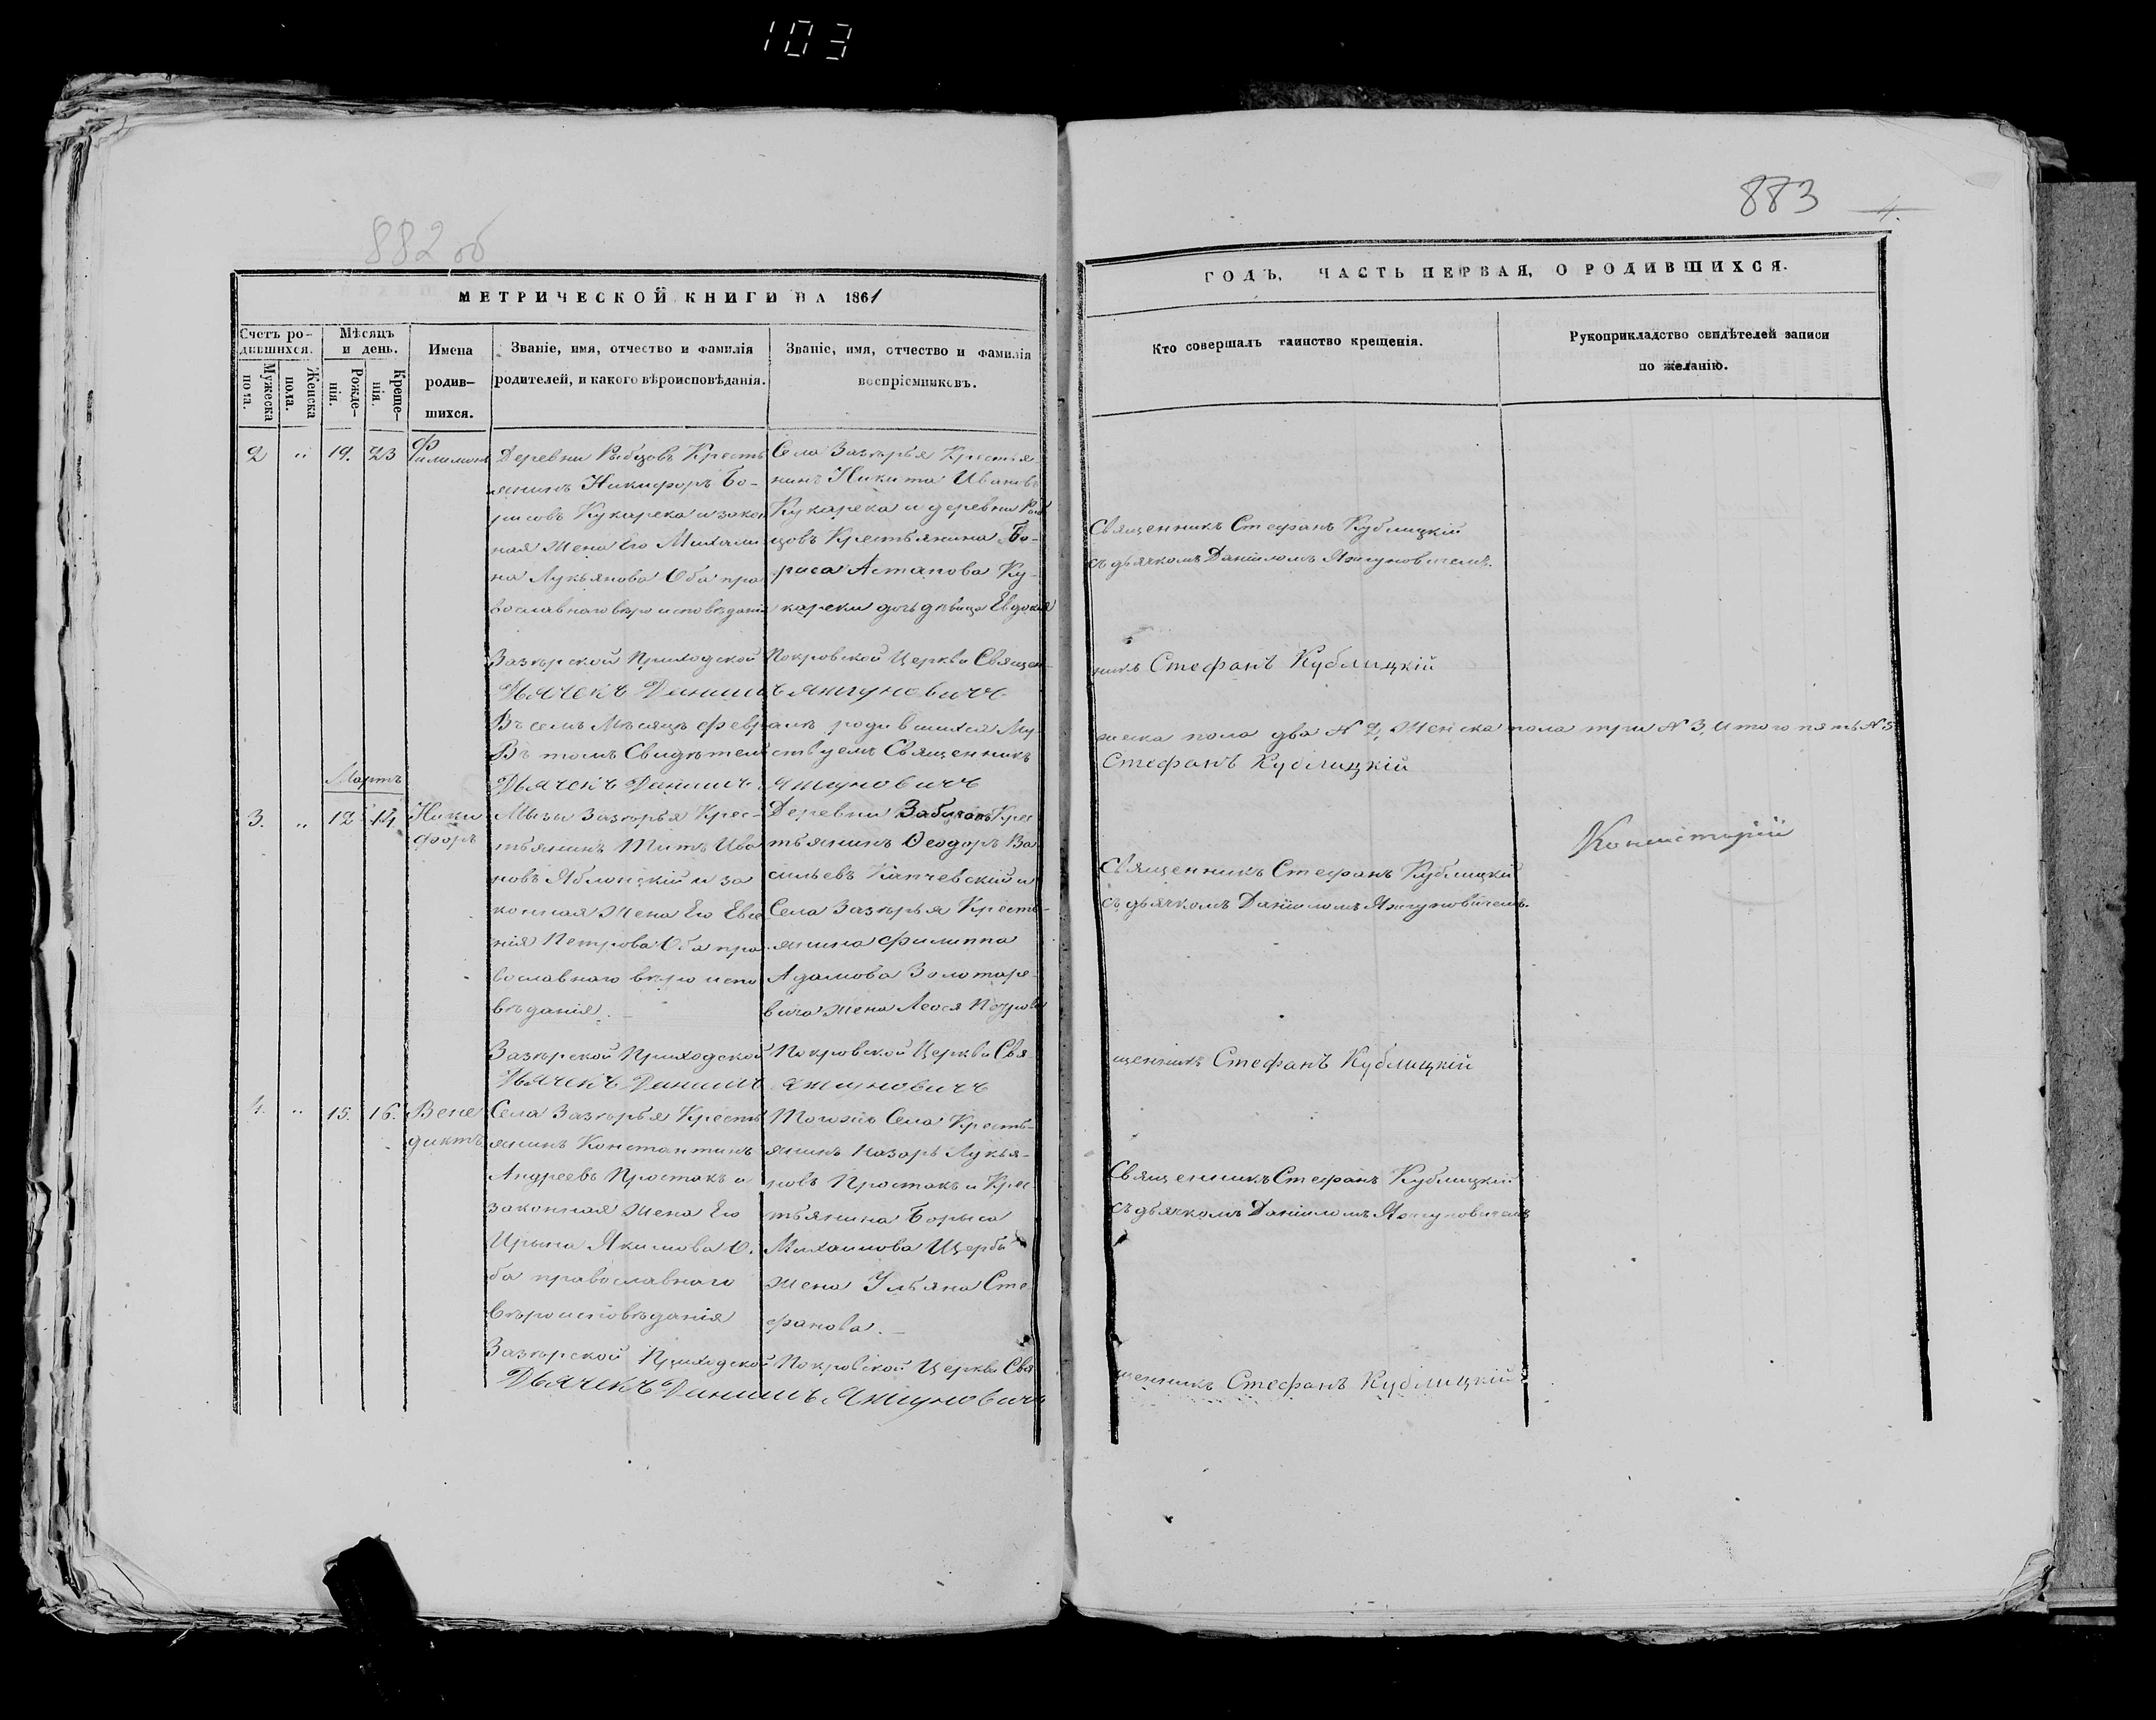 103
882 об
МЕТРИЧЕСКОЙ КНИГИ НА 1861
Счетъ ро-
дившихся.
Мѣсяцъ
и день.
Мужеска
пола.
Женска
пола.
Рожде-
нія.
Креще-
нія.
Имена
родив-
шихся.
Званіе, имя, отчество и фамилія
родителей, и какого вѣроисповѣданія.
Званіе, имя, отчество и фамилія
воспріемниковъ.
2 " 19. 23 Филимонъ
Деревни Рыбцовъ Кресть
янинъ Никифоръ Бо-
рисовъ Кукарека и закон
ная жена Его Михали
на Лукьянова Оба пра
вославнаго вѣроисповѣданія
Села Зазерья Крестья
нинъ Никита Ивановъ
Кукарека и деревни Рыб
цовъ Крестьянина Бо-
риса Астапова Ку-
кареки дочь дѣвица Евдокія
Зазѣрской Приходской Покровской Церкви Священ-
Дьячекъ Даниилъ Яжгуновичъ
Въ семъ Мѣсяцѣ Февралѣ родившихся Му
Въ томъ Свидѣтельствуемъ Священникъ
Дьячекъ Даниилъ Яжгуновичъ
Мартъ
3. " 12 14 Ники
форъ
Мызы Зазѣрья Крес-
тьянинъ Титъ Ива
новъ Яблонскій и за
конная Жена Его Евге
нія Петрова Оба пра
вославнаго вѣроиспо
вѣданія.
Деревни Крес
тьянинъ Ѳеодоръ Ва
сильевъ Капчевскій и
Села Зазѣрья Кресть-
янина Филиппа
Адамова Золотаре
вича жена Петрова
Зазѣрской Приходской Покровской Церкви Свя
Дьячекъ Даниилъ Яжгуновичъ
4. " 15. 16. Вене
диктъ
Села Зазѣрья Кресть
янинъ Константинъ
Андреевъ Простакъ и
законная жена Его
Ирына Якимова О.
ба православнаго
вѣроисповѣданія
Тогожъ Села Кресть-
янинъ Назаръ Лукья-
новъ Простакъ и Крес
тьянина Борыса
Михаилова Щербы
жена Ульяна Сте
фанова.
Зазѣрской Приходской Покровской Церкви Свя
Дьячекъ Даниилъ Яжгуновичъ
883
4.
ГОДЪ, ЧАСТЬ ПЕРВАЯ, О РОДИВШИХСЯ.
Кто совершалъ таинство крещенія.
Рукоприкладство свидѣтелей записи
по желанію.
Священникъ Стефанъ Кублицкій
съ дьячкомъ Даніиломъ Яжгуновичемъ.
никъ Стефанъ Кублицкій
жеска пола два № 2, Женска пола три № 3, Итого пять № 5
Стефанъ Кублицкій
Священникъ Стефанъ Кублицкій
съ дьячкомъ Даніиломъ Яжгуновичемъ.
щенникъ Стефанъ Кублицкій
Священникъ Стефанъ Кублицкій
съ дьячкомъ Даніиломъ Яжгуновичемъ
щенникъ Стефанъ Кублицкій